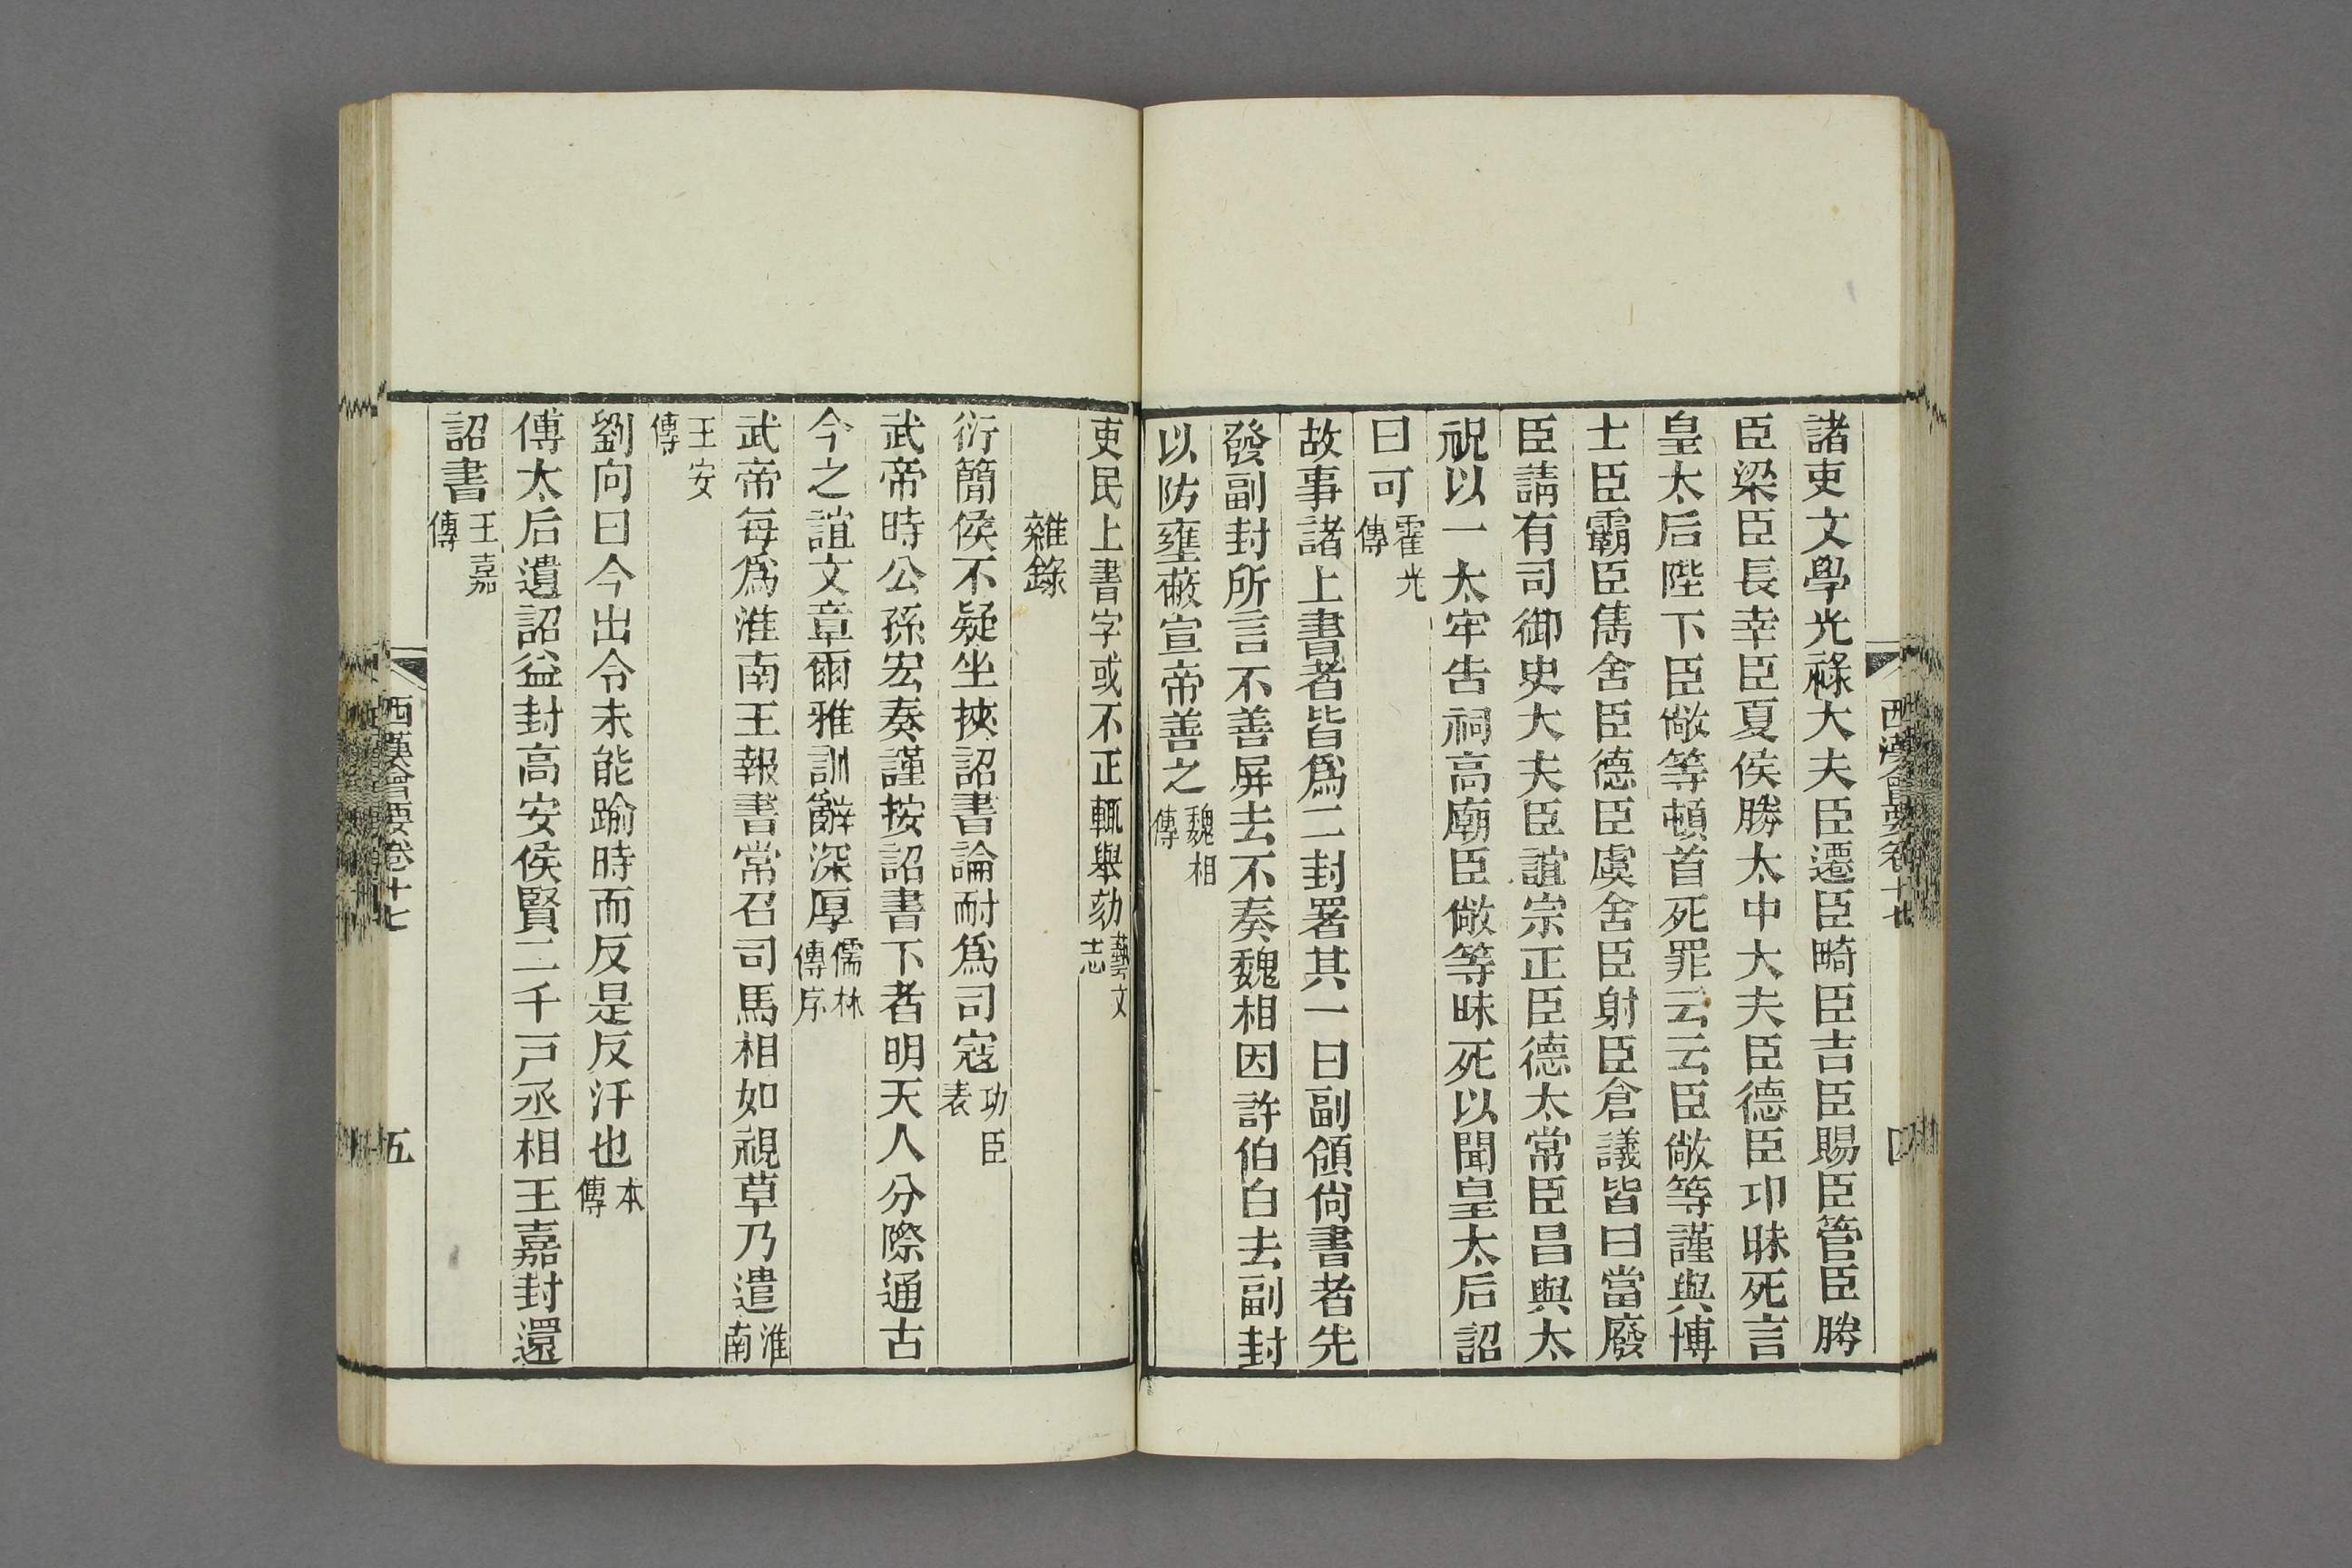 諸吏文學光祿大夫臣遷臣畸臣吉臣賜臣管臣勝
臣梁臣長幸臣夏侯勝太中大夫臣德臣卬昧死言
皇太后陛下臣敞等頓首死罪云云臣敞等謹與博
士臣霸臣雋舍臣德臣虞舍臣射臣倉議皆曰當廢
臣請有司御史大夫臣誼宗正臣德太常臣昌與太
祝以一太牢告祠高廟臣敞等昧死以聞皇太后詔
曰可霍光傳
故事諸上書者皆爲二封署其一曰副領尙書者先
發副封所言不善屏去不奏魏相因許伯白去副封
以防壅蔽宣帝善之魏相傳
西漢會要卷十七
四
吏民上書字或不正輒舉劾藝文志
雜錄
衍簡侯不疑坐挾詔書論耐爲司寇功臣表
武帝時公孫宏奏謹按詔書下者明天人分際通古
今之誼文章爾雅訓辭深厚儒林傳序
武帝每爲淮南王報書常召司馬相如視草乃遣淮南
王安傳
劉向曰今出令未能踰時而反是反汗也本傳
傅太后遺詔益封高安侯賢二千戸丞相王嘉封還
詔書王嘉傳
西漢會要卷十七
五